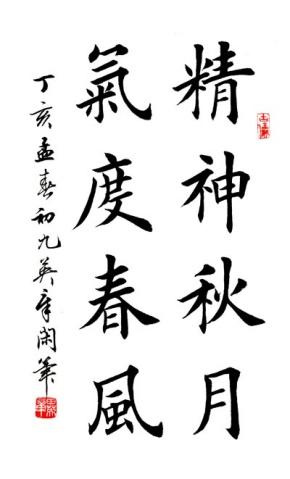 精神秋月
氣度春風
丁亥孟春初九英章閑筆